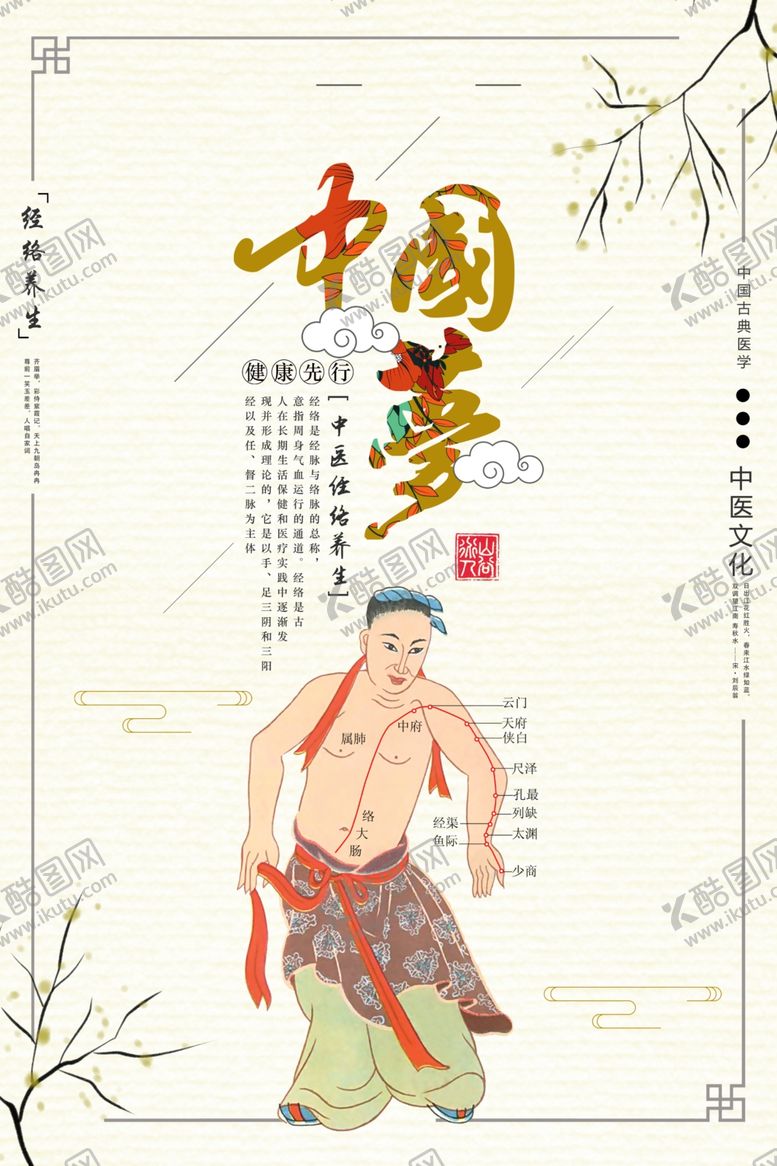 中國夢
「经络养生」
齐眉举，彩侍紫霞记。天上九朝岛冉冉
尊前一笑玉差差。人唱自家词
健康先行
[中医经络养生]
经络是经脉与络脉的总称，
意指周身气血运行的通道。经络是古
人在长期生活保健和医疗实践中逐渐发
现并形成理论的，它是以手、足三阴和三阳
经以及任、督二脉为主体
中国古典医学
中医文化
日出江花红胜火，春来江水绿如蓝。
双调望江南 寿秋水 ——宋·刘辰翁
云门
中府
天府
侠白
属肺
尺泽
孔最
列缺
络大肠
经渠
太渊
鱼际
少商
酷图网
www.ikutu.com